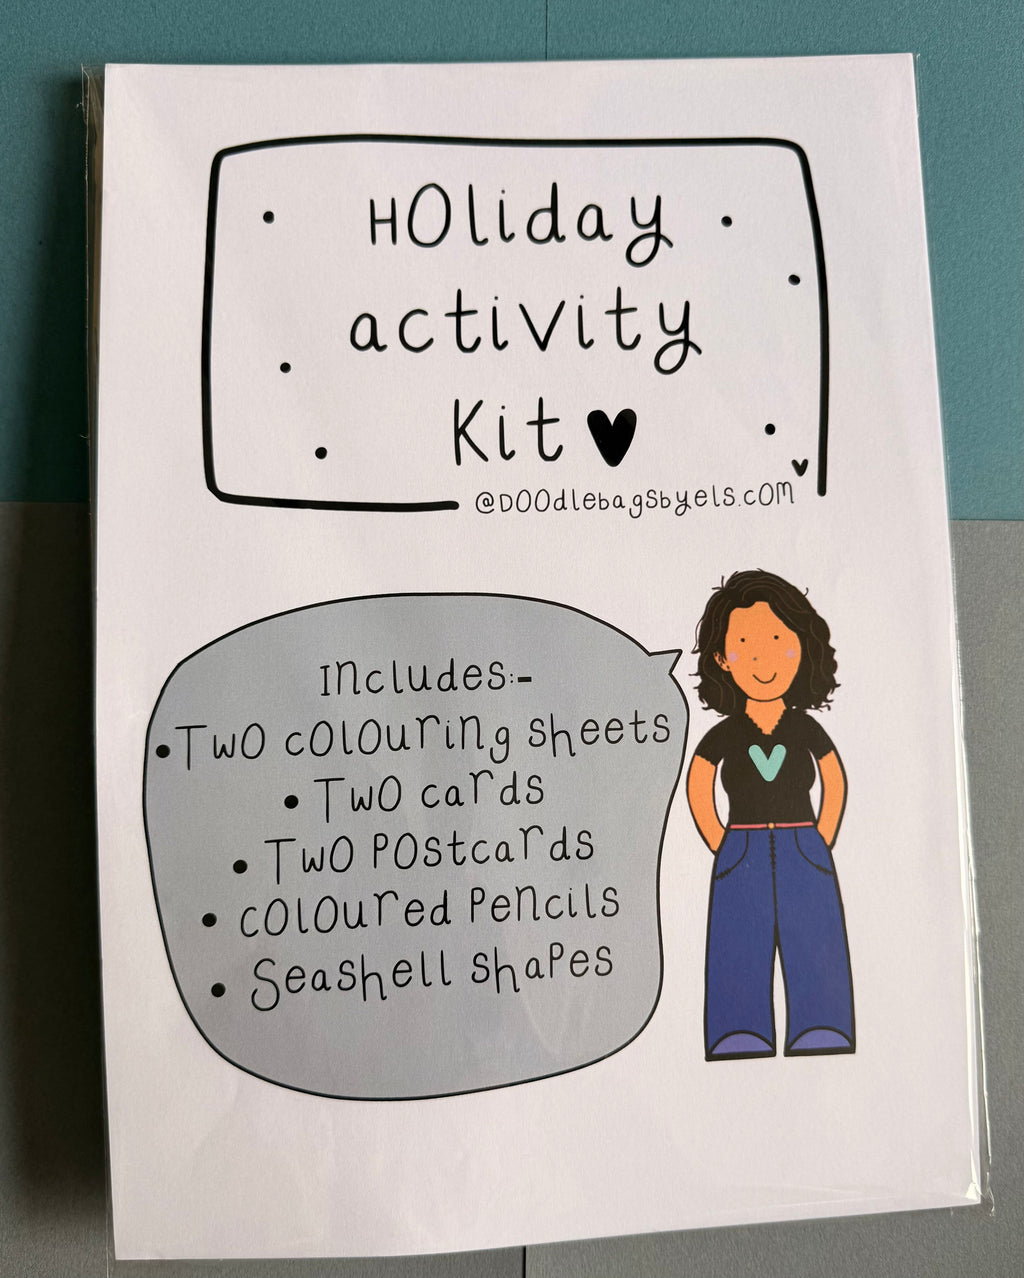 HOliday
activity
Kit ♥
@DOOdlebagsbyels.cOm
Includes:-
• TwO cOlOuring sheets
• TwO cards
• TwO POstcards
• cOlOured Pencils
• Seashell shaPes